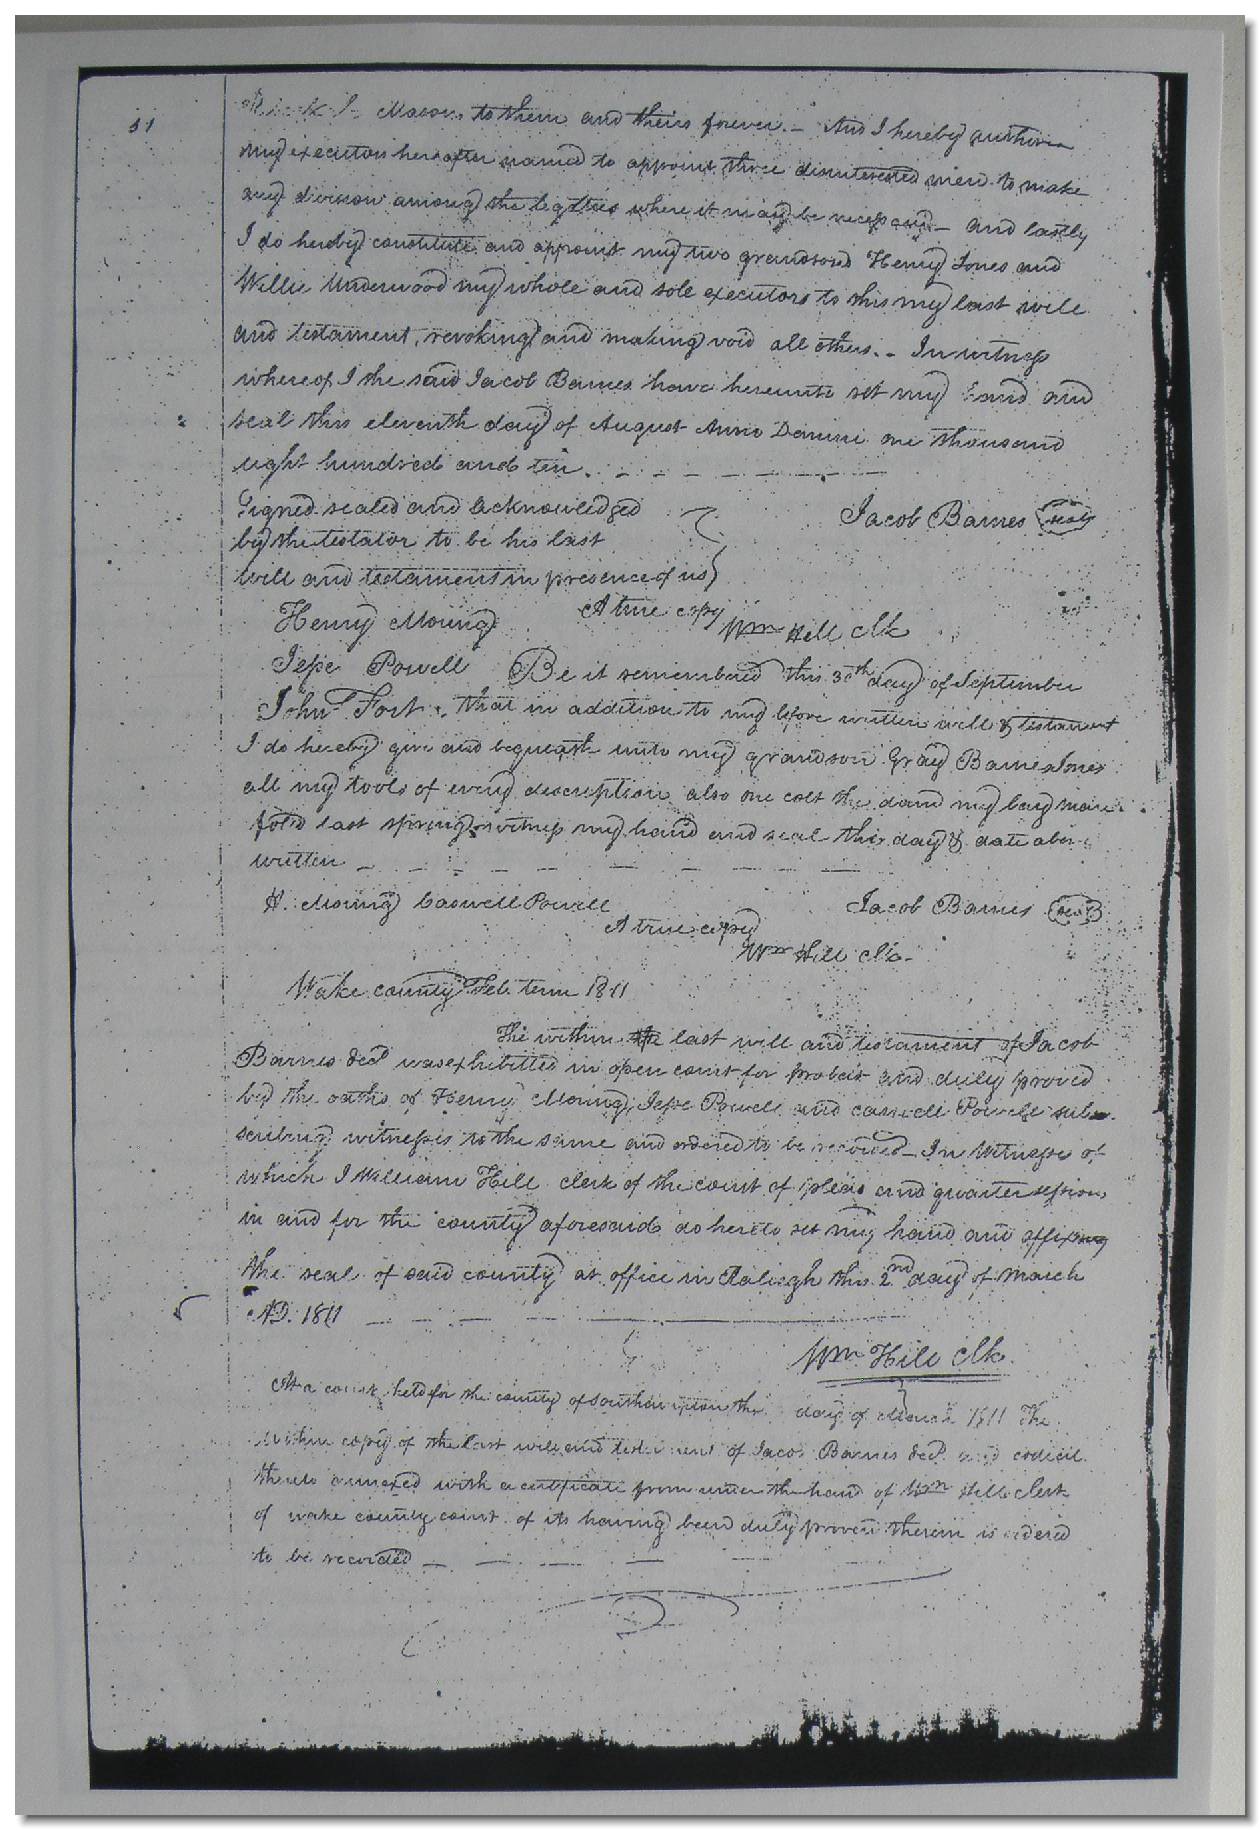 51
Mason to them and theirs forever. – And I hereby authorise
my executors hereafter named to appoint three disinterested men to make
any division among the legatees where it may be necessary – and lastly
I do hereby constitute and appoint my two grandsons Henry Jones and
Willie Underwood my whole and sole executors to this my last will
and testament, revoking and making void all others. – In witness
whereof I the said Jacob Barnes have hereunto set my hand and
seal this eleventh day of August Anno Domini one thousand
eight hundred and ten. – – – – – –
Signed sealed and acknowledged
Jacob Barnes seal
by the testator to be his last
will and testament in presence of us }
Henry Moring A true copy
Wm Hill clk
Jesse Powell Be it remembered this 30th day of September
John Fort. that in addition to my before written will & testament
I do hereby give and bequeath unto my grandson Gray Barnes Jones
all my tools of every description also one colt the my bay mare
last spring witness my hand and seal the day & date abov
written – – – – – – –
H. Moring Caswell Powell
Jacob Barnes seal
A true copy
Wm Hill clk.
Wake county Feb. term 1811
The within the last will and testament of Jacob
Barnes decd was exhibitted in open court for probate and duly proved
by the oaths of Henry Moring, Jesse Powell and caswell Powell sub-
scribing witnesses to the same and ordered to be recorded – In Witness of
which I William Hill clerk of the court of pleas and quarter sessions
in and for the county aforesaid do hereto set my hand and affix
the seal of said county at office in Raleigh this 2nd day of March
AD. 1811
Wm Hill clk.
At a court held for the county of Southampton the day of March 1811 The
within copy of the last will and testament of Jacob Barnes decd. and codicil
thereto annexed with a certificate from under the hand of Wm Hill clerk
of wake county court of its having been duly proven therein is ordered
to be recorded – – – – –